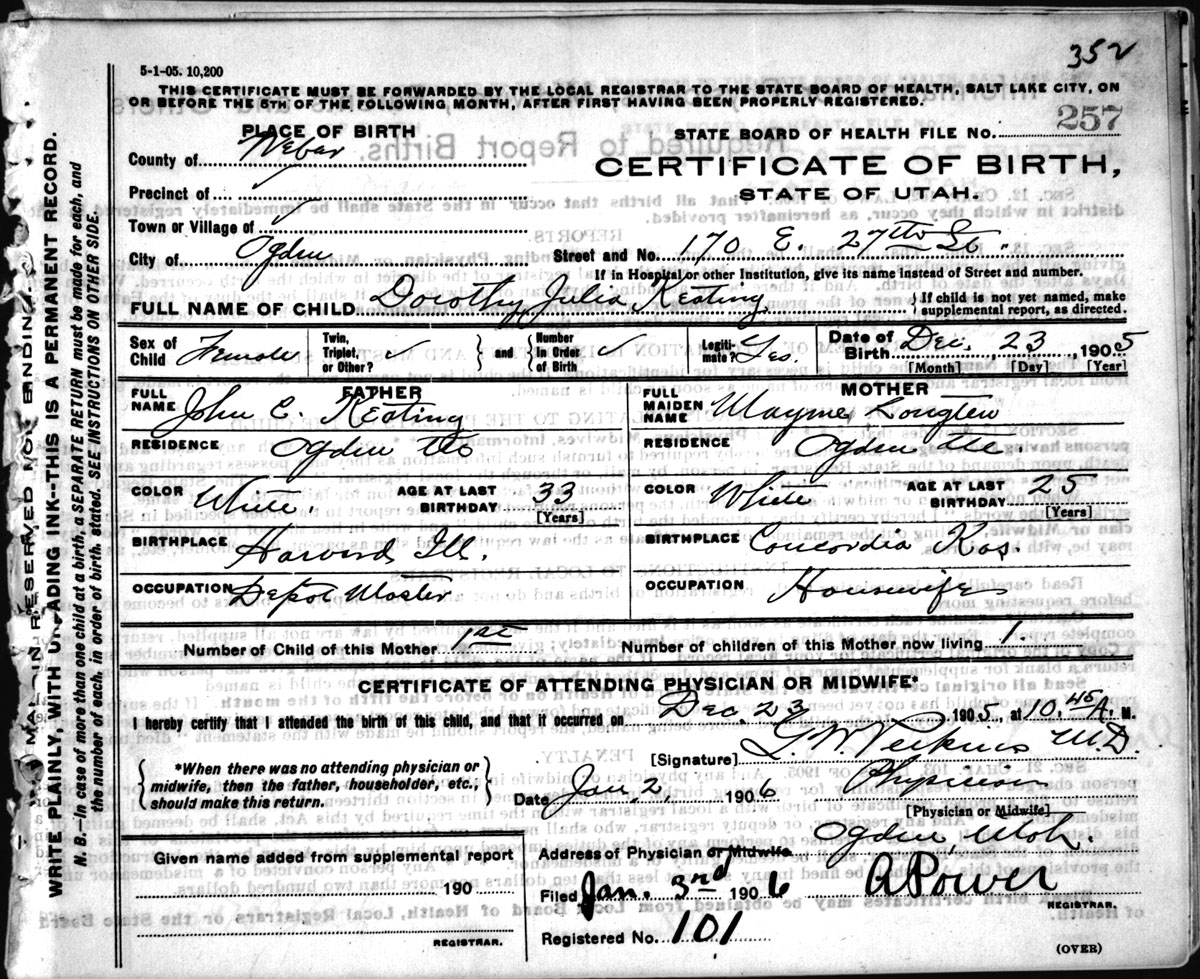 352
5-1-05. 10,200
THIS CERTIFICATE MUST BE FORWARDED BY THE LOCAL REGISTRAR TO THE STATE BOARD OF HEALTH, SALT LAKE CITY, ON
OR BEFORE THE 5TH OF THE FOLLOWING MONTH, AFTER FIRST HAVING BEEN PROPERLY REGISTERED.
PLACE OF BIRTH
STATE BOARD OF HEALTH FILE NO. 257
County of Weber
CERTIFICATE OF BIRTH,
Precinct of
STATE OF UTAH.
Town or Village of
City of Ogden Street and No. 170 E. 27th St.
If in Hospital or other Institution, give its name instead of Street and number.
FULL NAME OF CHILD Dorothy Julia Keating } If child is not yet named, make supplemental report, as directed.
Sex of Child Female Twin, Triplet, or Other? ✓ } and { Number In Order of Birth ✓ Legiti- mate? Yes. Date of Birth Dec. 23, 1905
[Month] [Day] [Year]
FATHER MOTHER
FULL NAME John E. Keating FULL MAIDEN NAME Mayme
RESIDENCE Ogden RESIDENCE Ogden
COLOR White. AGE AT LAST BIRTHDAY 33 [Years] COLOR White AGE AT LAST BIRTHDAY 25 [Years]
BIRTHPLACE Harvard Ill. BIRTHPLACE Concordia Kas.
OCCUPATION Depot Master OCCUPATION Housewife
Number of Child of this Mother 1st Number of children of this Mother now living 1.
CERTIFICATE OF ATTENDING PHYSICIAN OR MIDWIFE*
I hereby certify that I attended the birth of this child, and that it occurred on Dec. 23, 1905, at 10.45 A. M.
{ *When there was no attending physician or midwife, then the father, householder, etc., should make this return. }
[Signature] G. W. Perkins M.D.
Date Jan. 2, 1906 Physician
[Physician or Midwife]
Address of Physician or Midwife Ogden, Utah.
Given name added from supplemental report
190
Filed Jan. 3rd 1906 A Power
REGISTRAR.
REGISTRAR.
Registered No. 101
(OVER)
MARGIN RESERVED FOR BINDING
WRITE PLAINLY, WITH UNFADING INK--THIS IS A PERMANENT RECORD.
N. B.—In case of more than one child at a birth, a SEPARATE RETURN must be made for each, and
the number of each, in order of birth, stated. SEE INSTRUCTIONS ON OTHER SIDE.